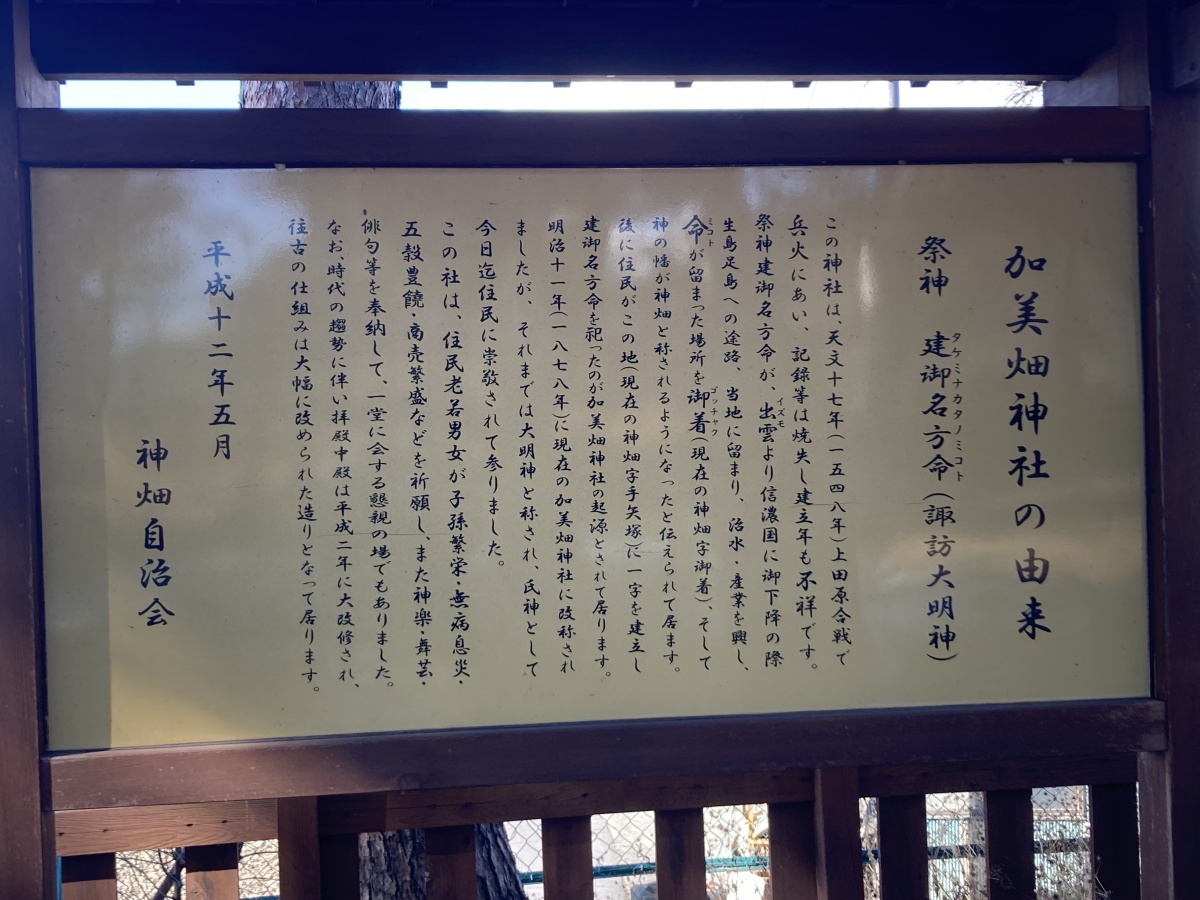 加美畑神社の由来
祭神 建御名方命(諏訪大明神)
タケミナカタノミコト
この神社は、天文十七年(一五四八年)上田原合戦で
兵火にあい、記録等は焼失し建立年も不祥です。
祭神建御名方命が、出雲より信濃国に御下降の際
イズモ
生島足島への途路、当地に留まり、治水・産業を興し、
命が留まった場所を御着(現在の神畑字御着)、そして
ミコト
ゴッチャク
神の幡が神畑と称されるようになったと伝えられて居ます。
後に住民がこの地(現在の神畑字手矢塚)に一字を建立し
建御名方命を祀ったのが加美畑神社の起源とされて居ります。
明治十一年(一八七八年)に現在の加美畑神社に改称され
ましたが、それまでは大明神と称され、氏神として
今日迄住民に崇敬されて参りました。
この社は、住民老若男女が子孫繁栄・無病息災・
五穀豊饒・商売繁盛などを祈願し、また神楽・舞芸・
俳句等を奉納して、一堂に会する懇親の場でもありました。
なお、時代の趨勢に伴い拝殿中殿は平成二年に大改修され、
往古の仕組みは大幅に改められた造りとなって居ります。
平成十二年五月
神畑自治会